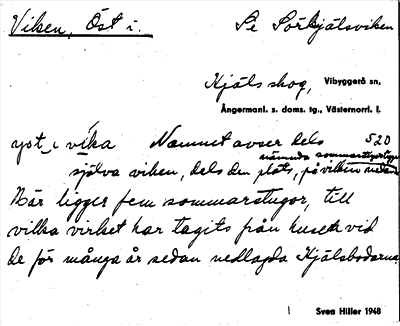 Viken, Öst i. Se Sörhjälsviken
Hjälsskog, Vibyggerå sn,
Ångermanl. s. doms. tg., Västernorrl. l.
yst i vika Namnet avser dels 520
själva viken, dels den plats, på vilken nedan
nämnda sommarstugetyp
Här ligger fem sommarstugor, till
vilka virket har tagits från husen vid
de för många år sedan nedlagda Hjälsbodarna.
Sven Hiller 1948